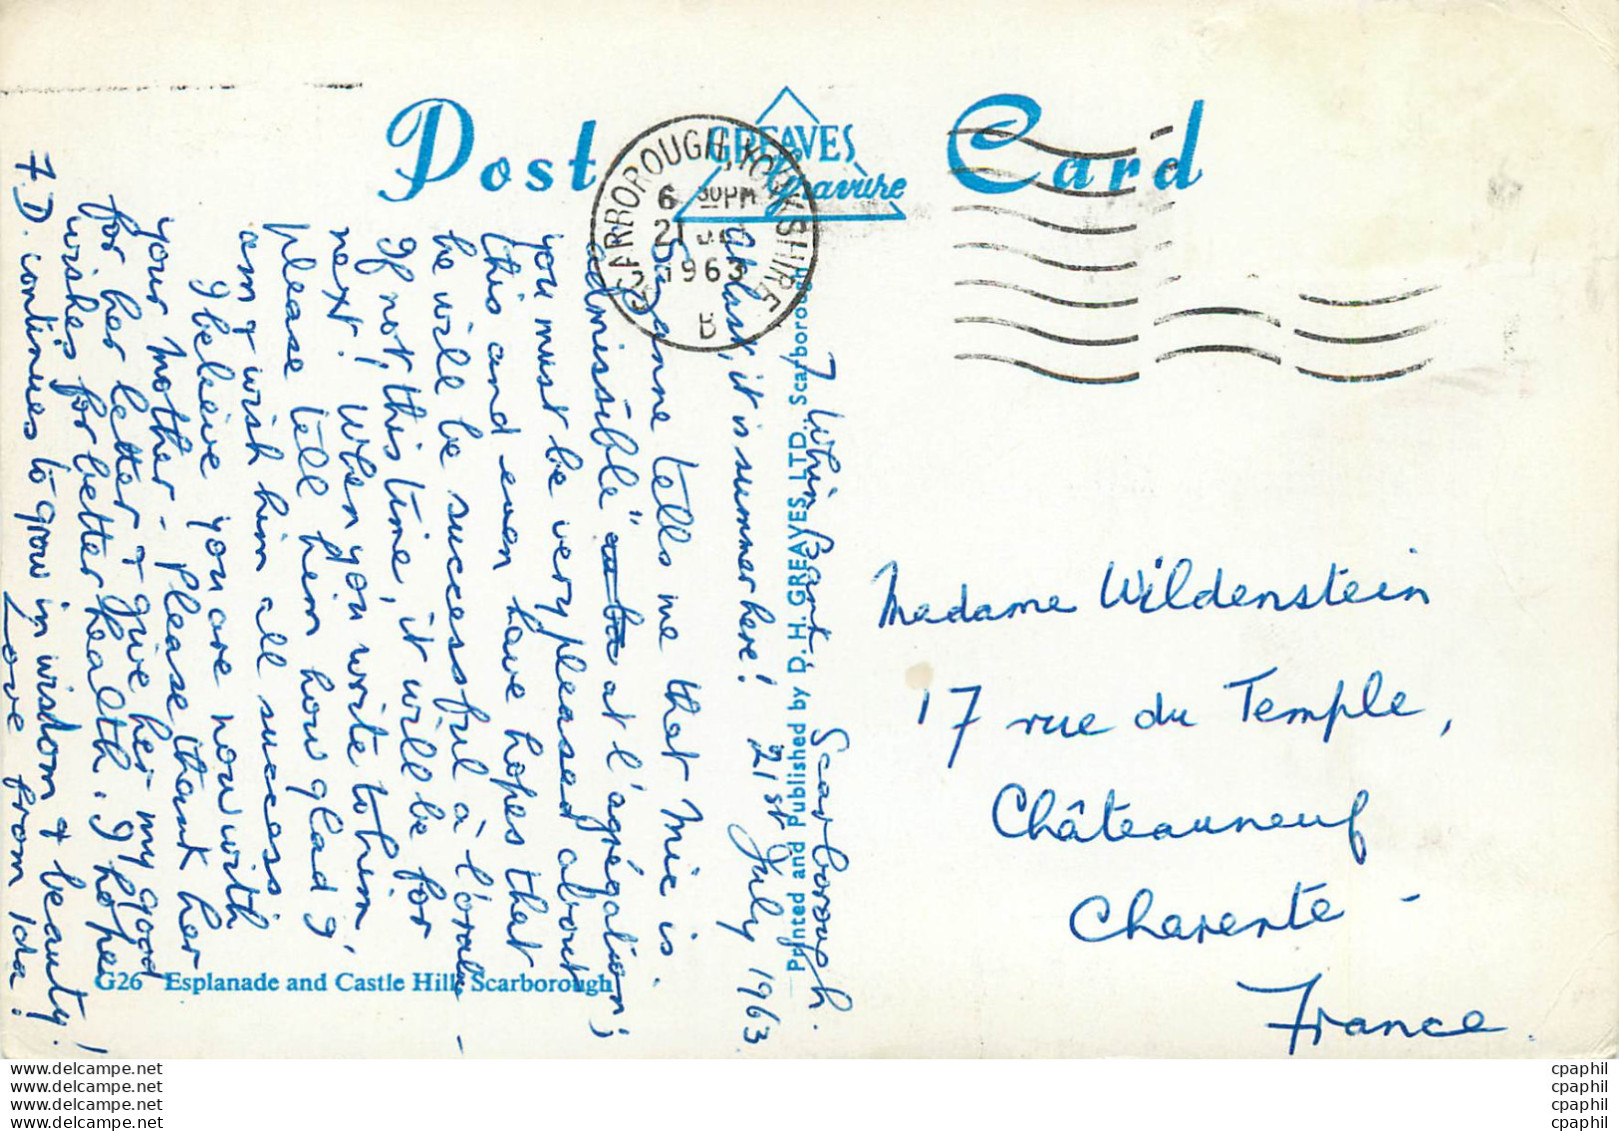 Post Card
GREAVES
Gravure
SCARBOROUGH, YORKSHIRE
6 30PM
21 JLY
1963
B
7 Whin Bank, Scarborough.
At last, it is summer here! 21st July 1963
Suzanne tells me that Mic is
"admissible" at l'agrégation;
you must be very pleased about
this and even have hopes that
he will be successful à l'oral -
If not, this time, it will be for
next! When you write to him,
please tell him how glad I
am & wish him all success
I believe you are now with
your mother - Please thank her
for her letter & give her my good
wishes for better health. I hope
7 D. continues to grow in wisdom & beauty!
Love from Ida!
Printed and Published by D. H. GREAVES, LTD Scarborough
G26 Esplanade and Castle Hill, Scarborough
Madame Wildenstein
17 rue du Temple,
Châteauneuf
Charente -
France.
www.delcampe.net
www.delcampe.net
www.delcampe.net
www.delcampe.net
cpaphil
cpaphil
cpaphil
cpaphil